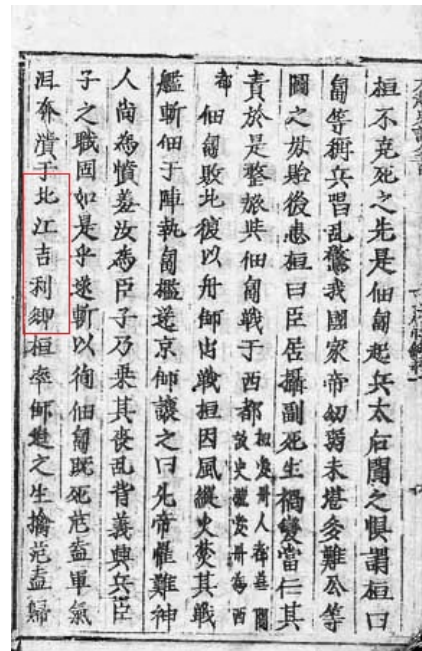 桓不克死之先是佃匐起兵太后聞之惧謂桓曰
匐等稱兵唱乱驚我國家帝幼弱未堪多難公等
圖之毋貽後患桓曰臣居攝副死生禍變當任其
責於是整旅與佃匐戰于西都桓愛州人都華閭故史謂愛州為西
都佃匐敗北復以舟師出戰桓因風縱火焚其戰
艦斬佃于陣執匐檻送京師讓之曰先帝罹難神
人尚為憤羞汝為臣子乃乘其喪乱背義興兵臣
子之職固如是乎遂斬以徇佃匐既死范盍軍氣
沮奔潰于北江吉利鄉桓率師追之生擒范盍歸